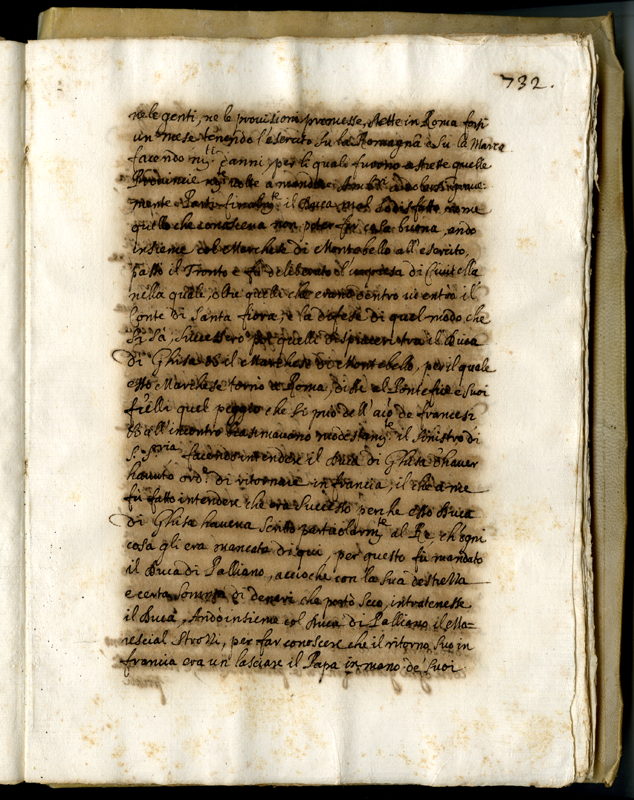 732.
ne le genti, ne le provisioni promesse, stette in Roma forsi
un mese tenendo l'esercito su la Romagna e su la Marca
facendo danni, per le quale furono astrette quelle
Provincie
mente e Parti finalm.te il Duca mal sodisfatto, come
quello che conosceva non poter far cosa buona, andò
insieme col Marchese di Montebello all'esercito,
Passò il Tronto e fù deliberato l'impresa di Civitella
nella quale, oltre quelli che erano dentro vi entrò il
Conte di Santa fiora, e la difese di quel modo che
si sà, Successero poi quelli dispiaceri tra il Duca
di Ghisa et il Marchese di Montebello, per il quale
esso Marchese tornò a Roma, disse al Pontefice e suoi
fr'elli quel peggio che si può dell' de francesi
et all'incontro biasimavano modestam.te il Ministro di
S. S.oria facendo intendere il Duca di Ghisa d'haver
havuto ord.e di ritornare in francia, il che a me
fù fatto intendere che era successo perche esso Duca
di Ghisa haveva scritto particolarm.te al Re, ch'ogni
cosa gli era mancata di qui, per questo fù mandato
il Duca di Palliano, accioche con la sua destrezza
e certa somma di denari che portò seco, intratenesse
il Duca, Andò insieme col Duca di Palliano il Ma=
rescial Strozzi, per far conoscere che il ritorno suo in
francia era un lasciare il Papa in mano de suoi